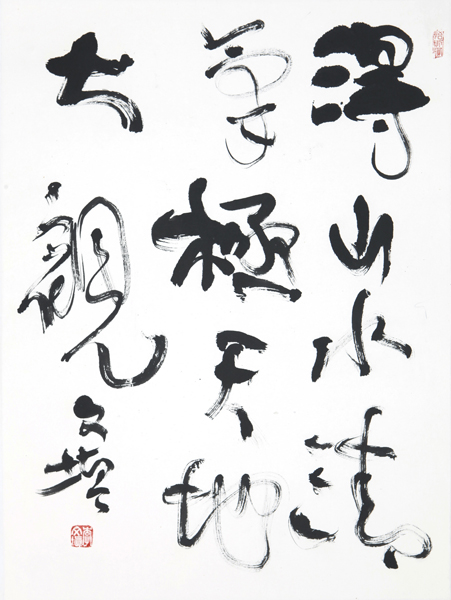 得山水清
氣極天地
大觀 文增